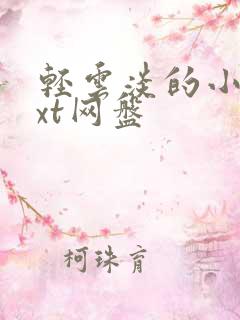 轻雲淡的小
xt网盘
柯珠育